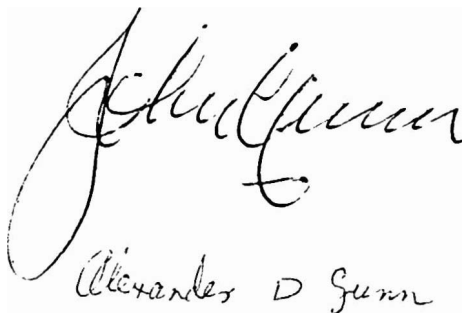 John Gunn
Alexander D Gunn